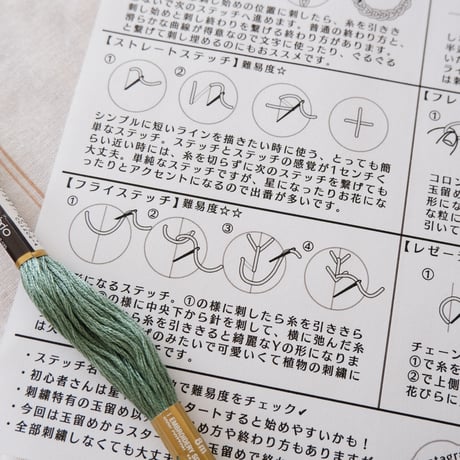 刺し始めの位置に刺したら、糸を引き
ないで次のステッチへ進めます。普通の終わり方と、
刺し始めと刺し終わりを繋げる終わり方があります。
滑らかな曲線が得意なので文字に使ったり、ぐるぐる
と繋げて刺し埋めるのにもおススメです。
【ストレートステッチ】難易度☆
① ②
シンプルに短いラインを描きたい時に使う、とっても簡
単なステッチ。ステッチとステッチの感覚が1センチく
らい近い時には、糸を切らずに次のステッチを繋げても
大丈夫。単純なステッチですが、星になったりお花にな
ったりとアクセントになるので出番が多いです。
【フライステッチ】難易度☆☆
① ② ③ ④
形になるステッチ。①の様に刺したら糸を引ききら
の様に中央下から針を刺して、横に弛んだ糸
ら糸を引ききると綺麗なYの形になりま
のみたいで可愛いくて植物の刺繍に
です。
・ステッチ名
で難易度をチェック✓
・初心者さんは星
スタートすると始めやすいかも!
・刺繍特有の玉留め以
・今回は玉留めからスター
め方や終わり方もありますが
・全部刺繍しなくても大丈夫
【フレ
①
コロン
玉留め
形にな
な粒に
引いて
【レゼー
①
チェーン
①で糸を
②で上側
花びらに
8m
EMBROIDERY